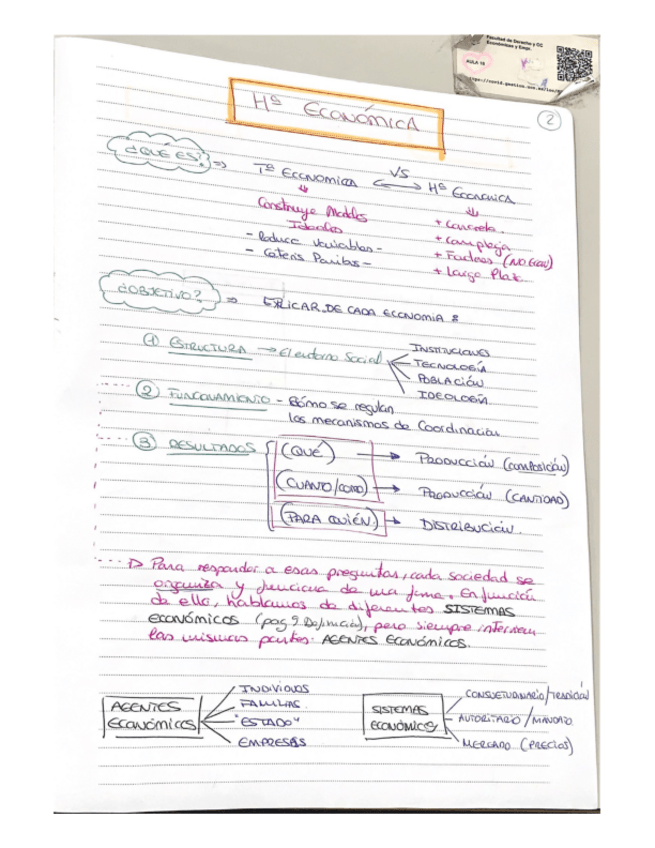 Facultad de Derecho y CC
Económicas y Empr.
AULA 16
2
Hª ECONÓMICA
¿QUÉ ES? ⇒ Tª ECONÓMICA VS Hª ECONÓMICA
Construye Modelos
Ideales
- Reduce variables -
- Ceteris Paribus -
+ Concreta.
+ Compleja
+ Factores (NO ECON)
+ Largo Plazo
¿OBJETIVO? ⇒ EXPLICAR DE CADA ECONOMIA:
① ESTRUCTURA → El entorno Social
INSTITUCIONES
TECNOLOGÍA
POBLACIÓN
IDEOLOGÍA
② FUNCIONAMIENTO - Cómo se regulan
los mecanismos de Coordinación
③ RESULTADOS
(QUÉ) → PRODUCCIÓN (COMPOSICIÓN)
(CUANTO/COMO) → PRODUCCIÓN (CANTIDAD)
(PARA QUIÉN) → DISTRIBUCIÓN.
Para responder a esas preguntas, cada sociedad se
organiza y funciona de una forma. En función
de ello, hablamos de diferentes SISTEMAS
ECONÓMICOS (pag 9. Definición), pero siempre intervienen
las mismas partes: AGENTES ECONÓMICOS.
AGENTES
ECONÓMICOS
INDIVIDUOS
FAMILIAS
"ESTADO"
EMPRESAS
SISTEMAS
ECONÓMICOS
CONSUETUDINARIO/TRADICIÓN
AUTORITARIO / MANDATO
MERCADO (PRECIOS)